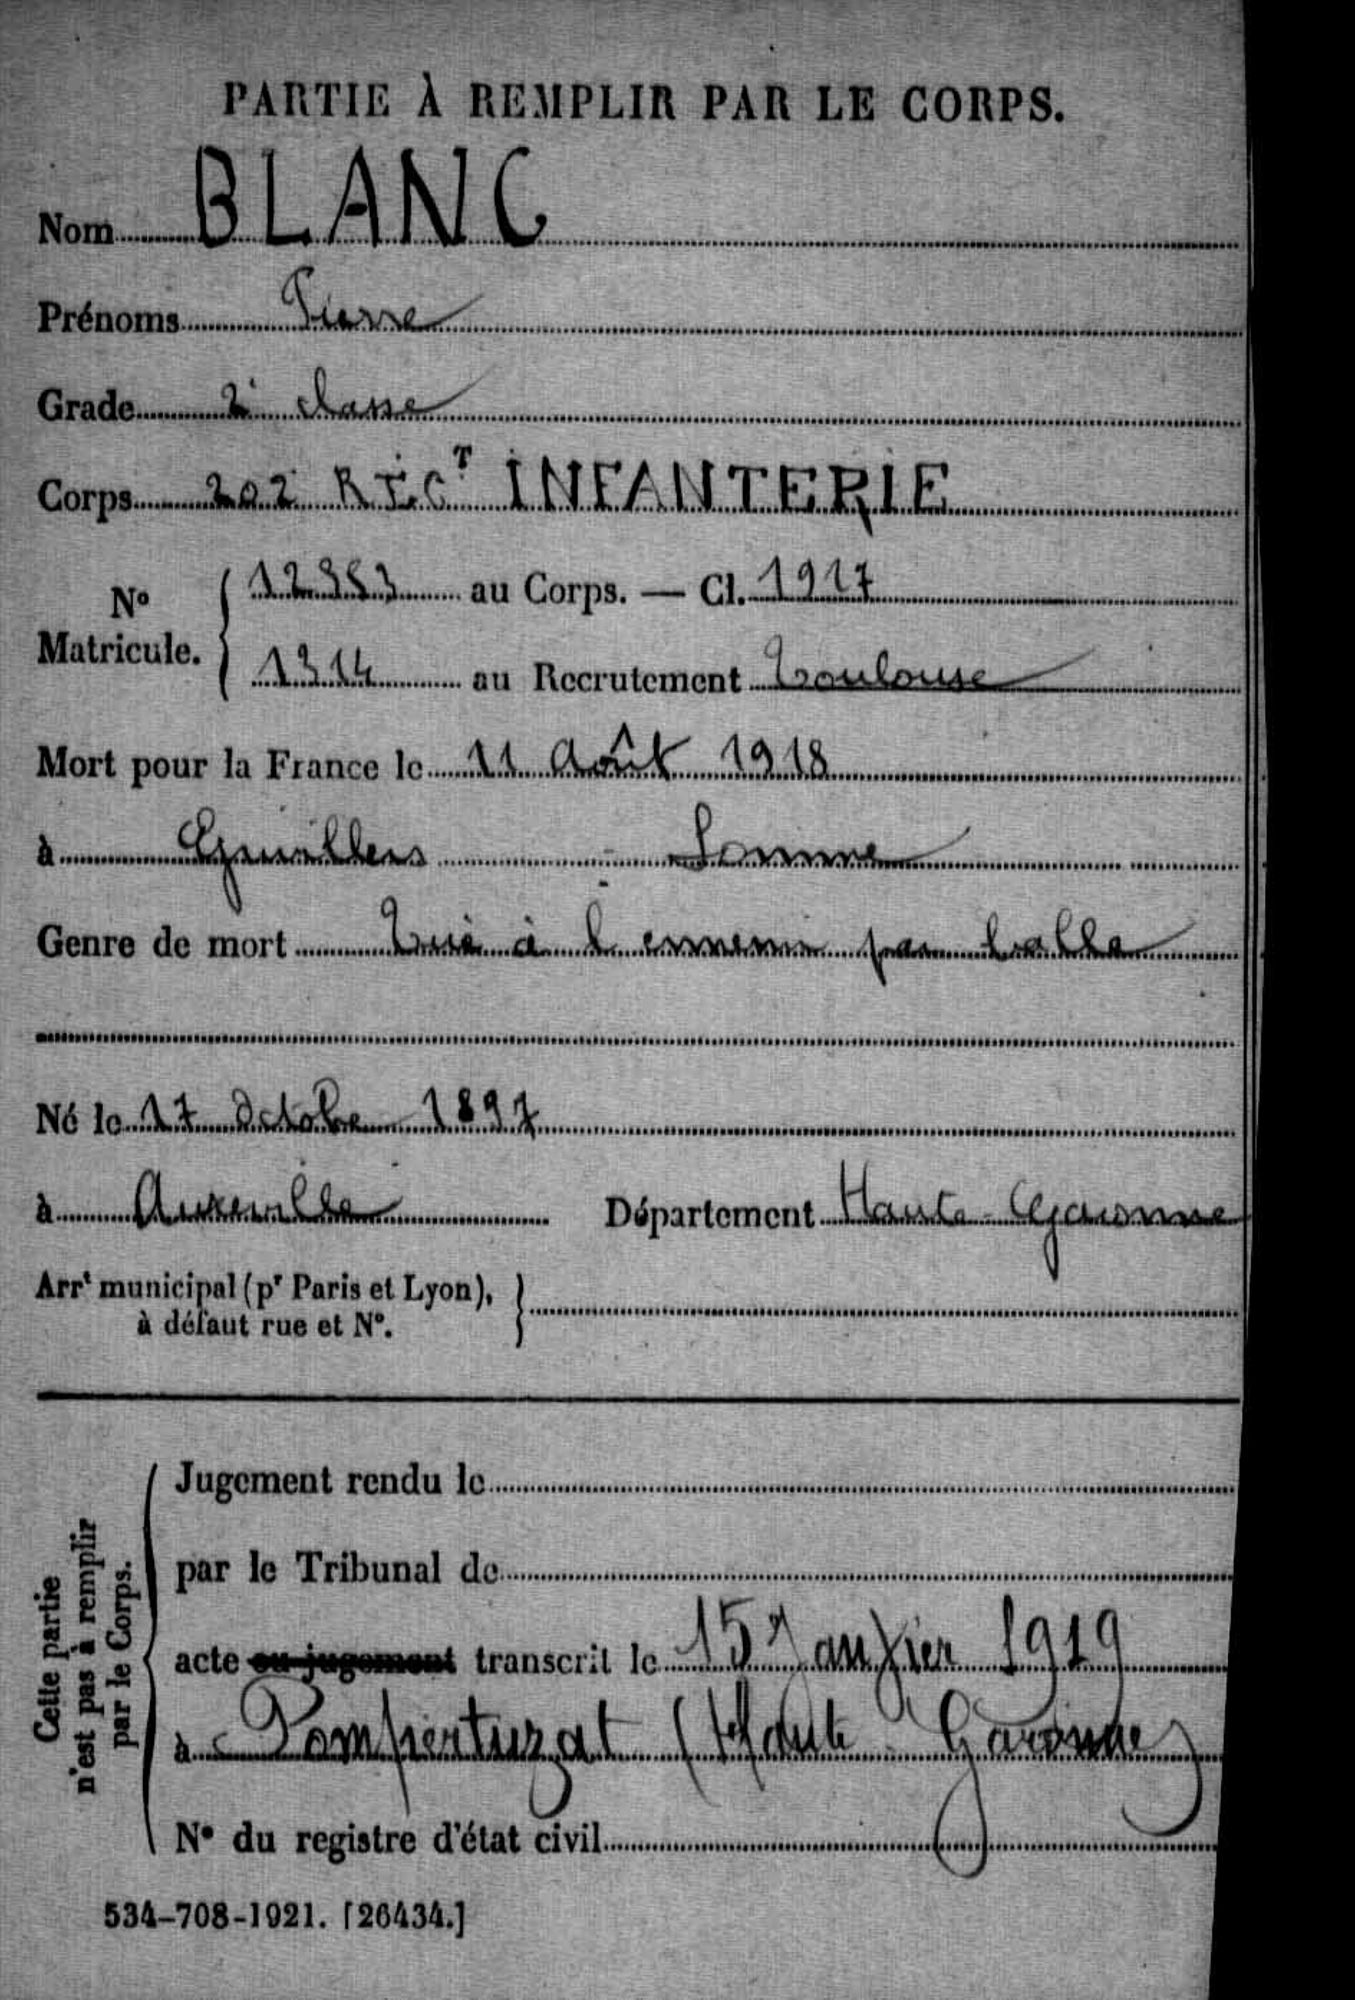 PARTIE À REMPLIR PAR LE CORPS.
Nom BLANC
Prénoms Pierre
Grade 2e classe
Corps 202 RÉGT INFANTERIE
No Matricule. 12353 au Corps. — Cl. 1917
1314 au Recrutement Toulouse
Mort pour la France le 11 Août 1918
à Somme
Genre de mort Tué à l'ennemi par balle
Né le 17 Octobre 1897
à Auzeville Département Haute-Garonne
Arrt municipal (pr Paris et Lyon),
à défaut rue et No.
Cette partie
n'est pas à remplir
par le Corps.
Jugement rendu le
par le Tribunal de
acte ou jugement transcrit le 15 Janvier 1919
à Pompertuzat (Haute Garonne)
No du registre d'état civil
534-708-1921. [26434.]